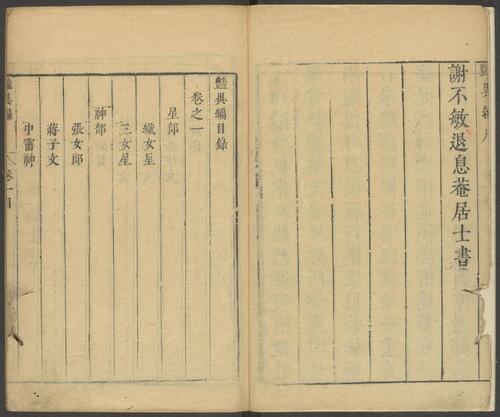 謝不敏退息菴居士書
豔異編目錄
卷之一
星部
織女星
三女星
神部
張女郎
蔣子文
中霤神
豔異編